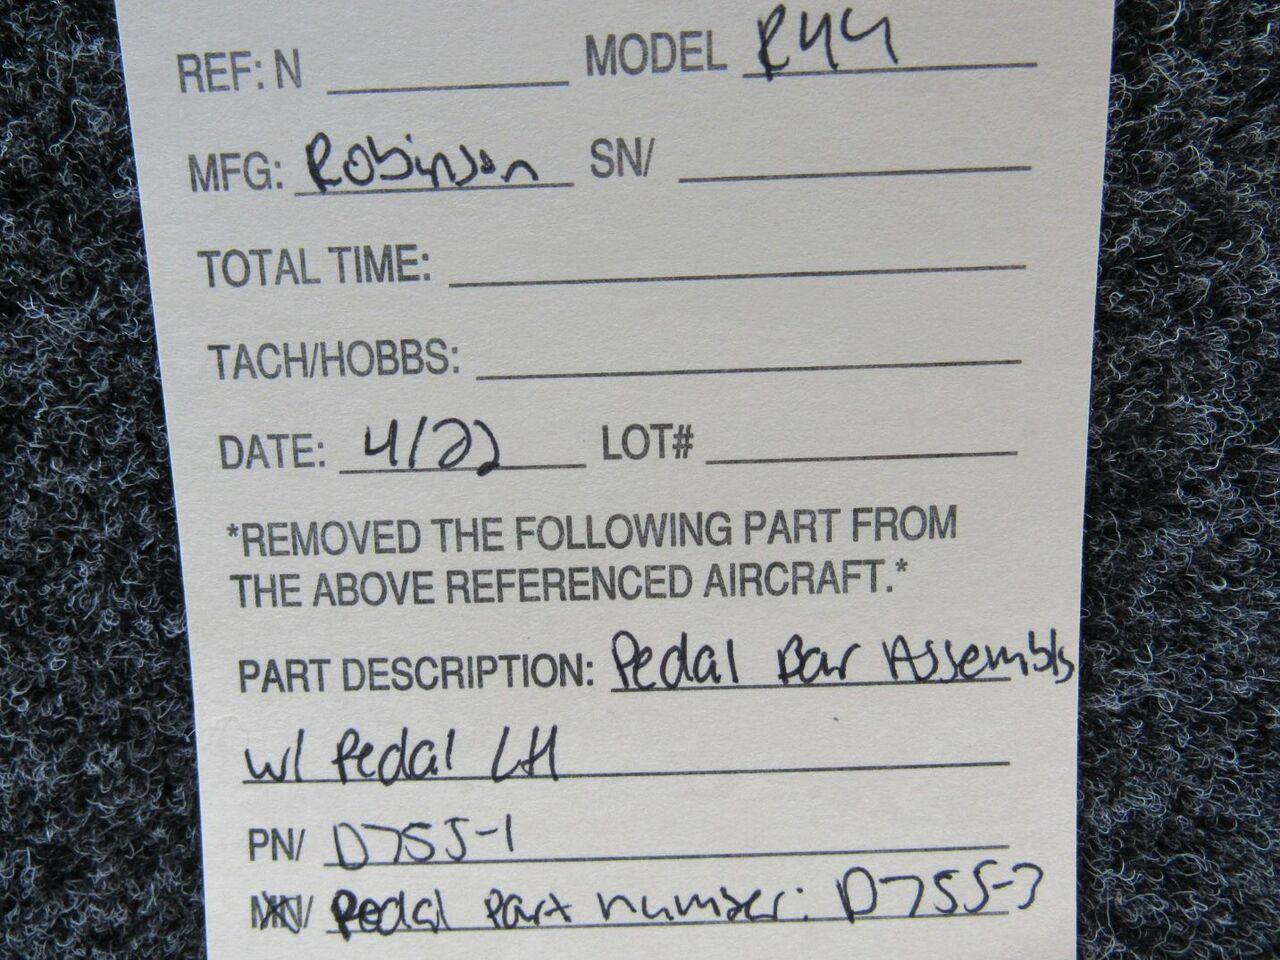 REF: N MODEL R44
MFG: Robinson SN/
TOTAL TIME:
TACH/HOBBS:
DATE: 4/22 LOT#
*REMOVED THE FOLLOWING PART FROM
THE ABOVE REFERENCED AIRCRAFT.*
PART DESCRIPTION: Pedal Bar Assembly
w/ Pedal LH
PN/ D755-1
Pedal Part number: D755-3